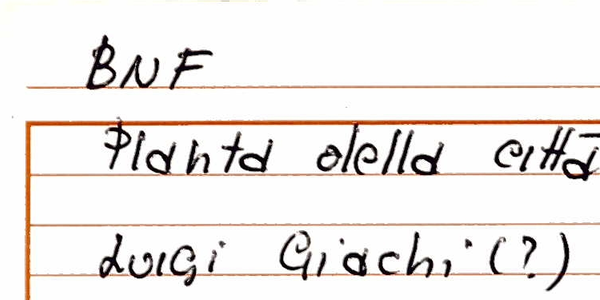 BNF
Pianta della città
Luigi Giachi (?)